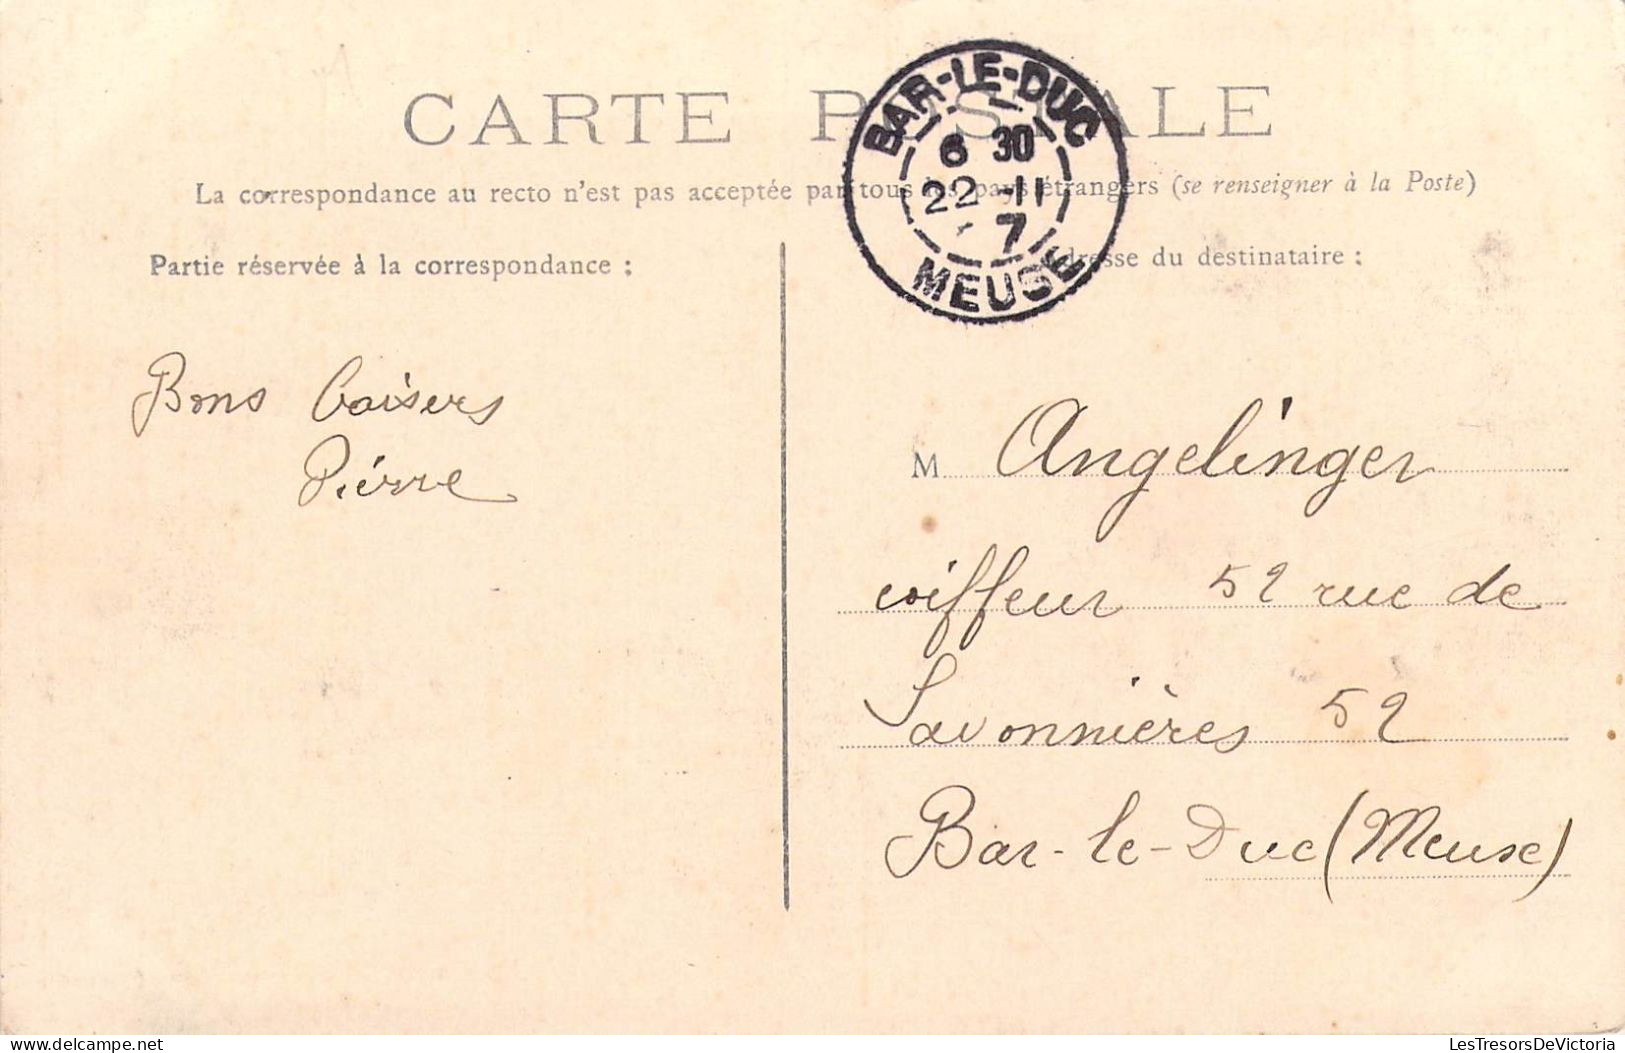 CARTE POSTALE
BAR-LE-DUC
6 30
22 -11
7
MEUSE
La correspondance au recto n'est pas acceptée par tous les pays étrangers (se renseigner à la Poste)
Partie réservée à la correspondance :
Adresse du destinataire :
Bons baisers
Pierre
M Angelinger
coiffeur 52 rue de
Savonnières 52
Bar-le-Duc (Meuse)
LesTresorsDeVictoria
www.delcampe.net